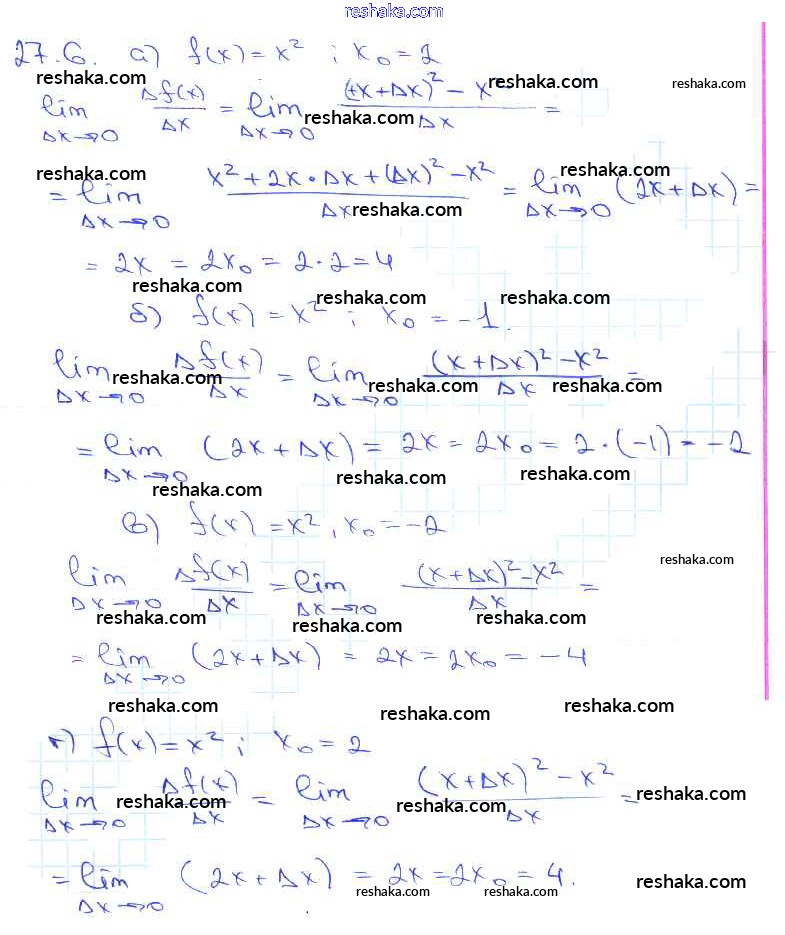 reshaka.com
27.6. а) f(x) = x² ; x₀ = 2
reshaka.com reshaka.com reshaka.com
lim Δx→0 Δf(x)/Δx = lim Δx→0 ((x+Δx)² - x²)/Δx =
reshaka.com reshaka.com
reshaka.com reshaka.com
= lim Δx→0 (x² + 2x·Δx + (Δx)² - x²)/Δx = lim Δx→0 (2x + Δx) =
reshaka.com
= 2x = 2x₀ = 2·2 = 4
reshaka.com reshaka.com reshaka.com
б) f(x) = x² ; x₀ = -1.
lim Δx→0 Δf(x)/Δx = lim Δx→0 ((x+Δx)² - x²)/Δx =
reshaka.com reshaka.com reshaka.com
= lim Δx→0 (2x + Δx) = 2x = 2x₀ = 2·(-1) = -2
reshaka.com reshaka.com reshaka.com
в) f(x) = x², x₀ = -2
reshaka.com
lim Δx→0 Δf(x)/Δx = lim Δx→0 ((x+Δx)² - x²)/Δx =
reshaka.com reshaka.com reshaka.com
= lim Δx→0 (2x + Δx) = 2x = 2x₀ = -4
reshaka.com reshaka.com reshaka.com
г) f(x) = x² ; x₀ = 2
lim Δx→0 Δf(x)/Δx = lim Δx→0 ((x+Δx)² - x²)/Δx =
reshaka.com reshaka.com reshaka.com
= lim Δx→0 (2x + Δx) = 2x = 2x₀ = 4.
reshaka.com reshaka.com reshaka.com